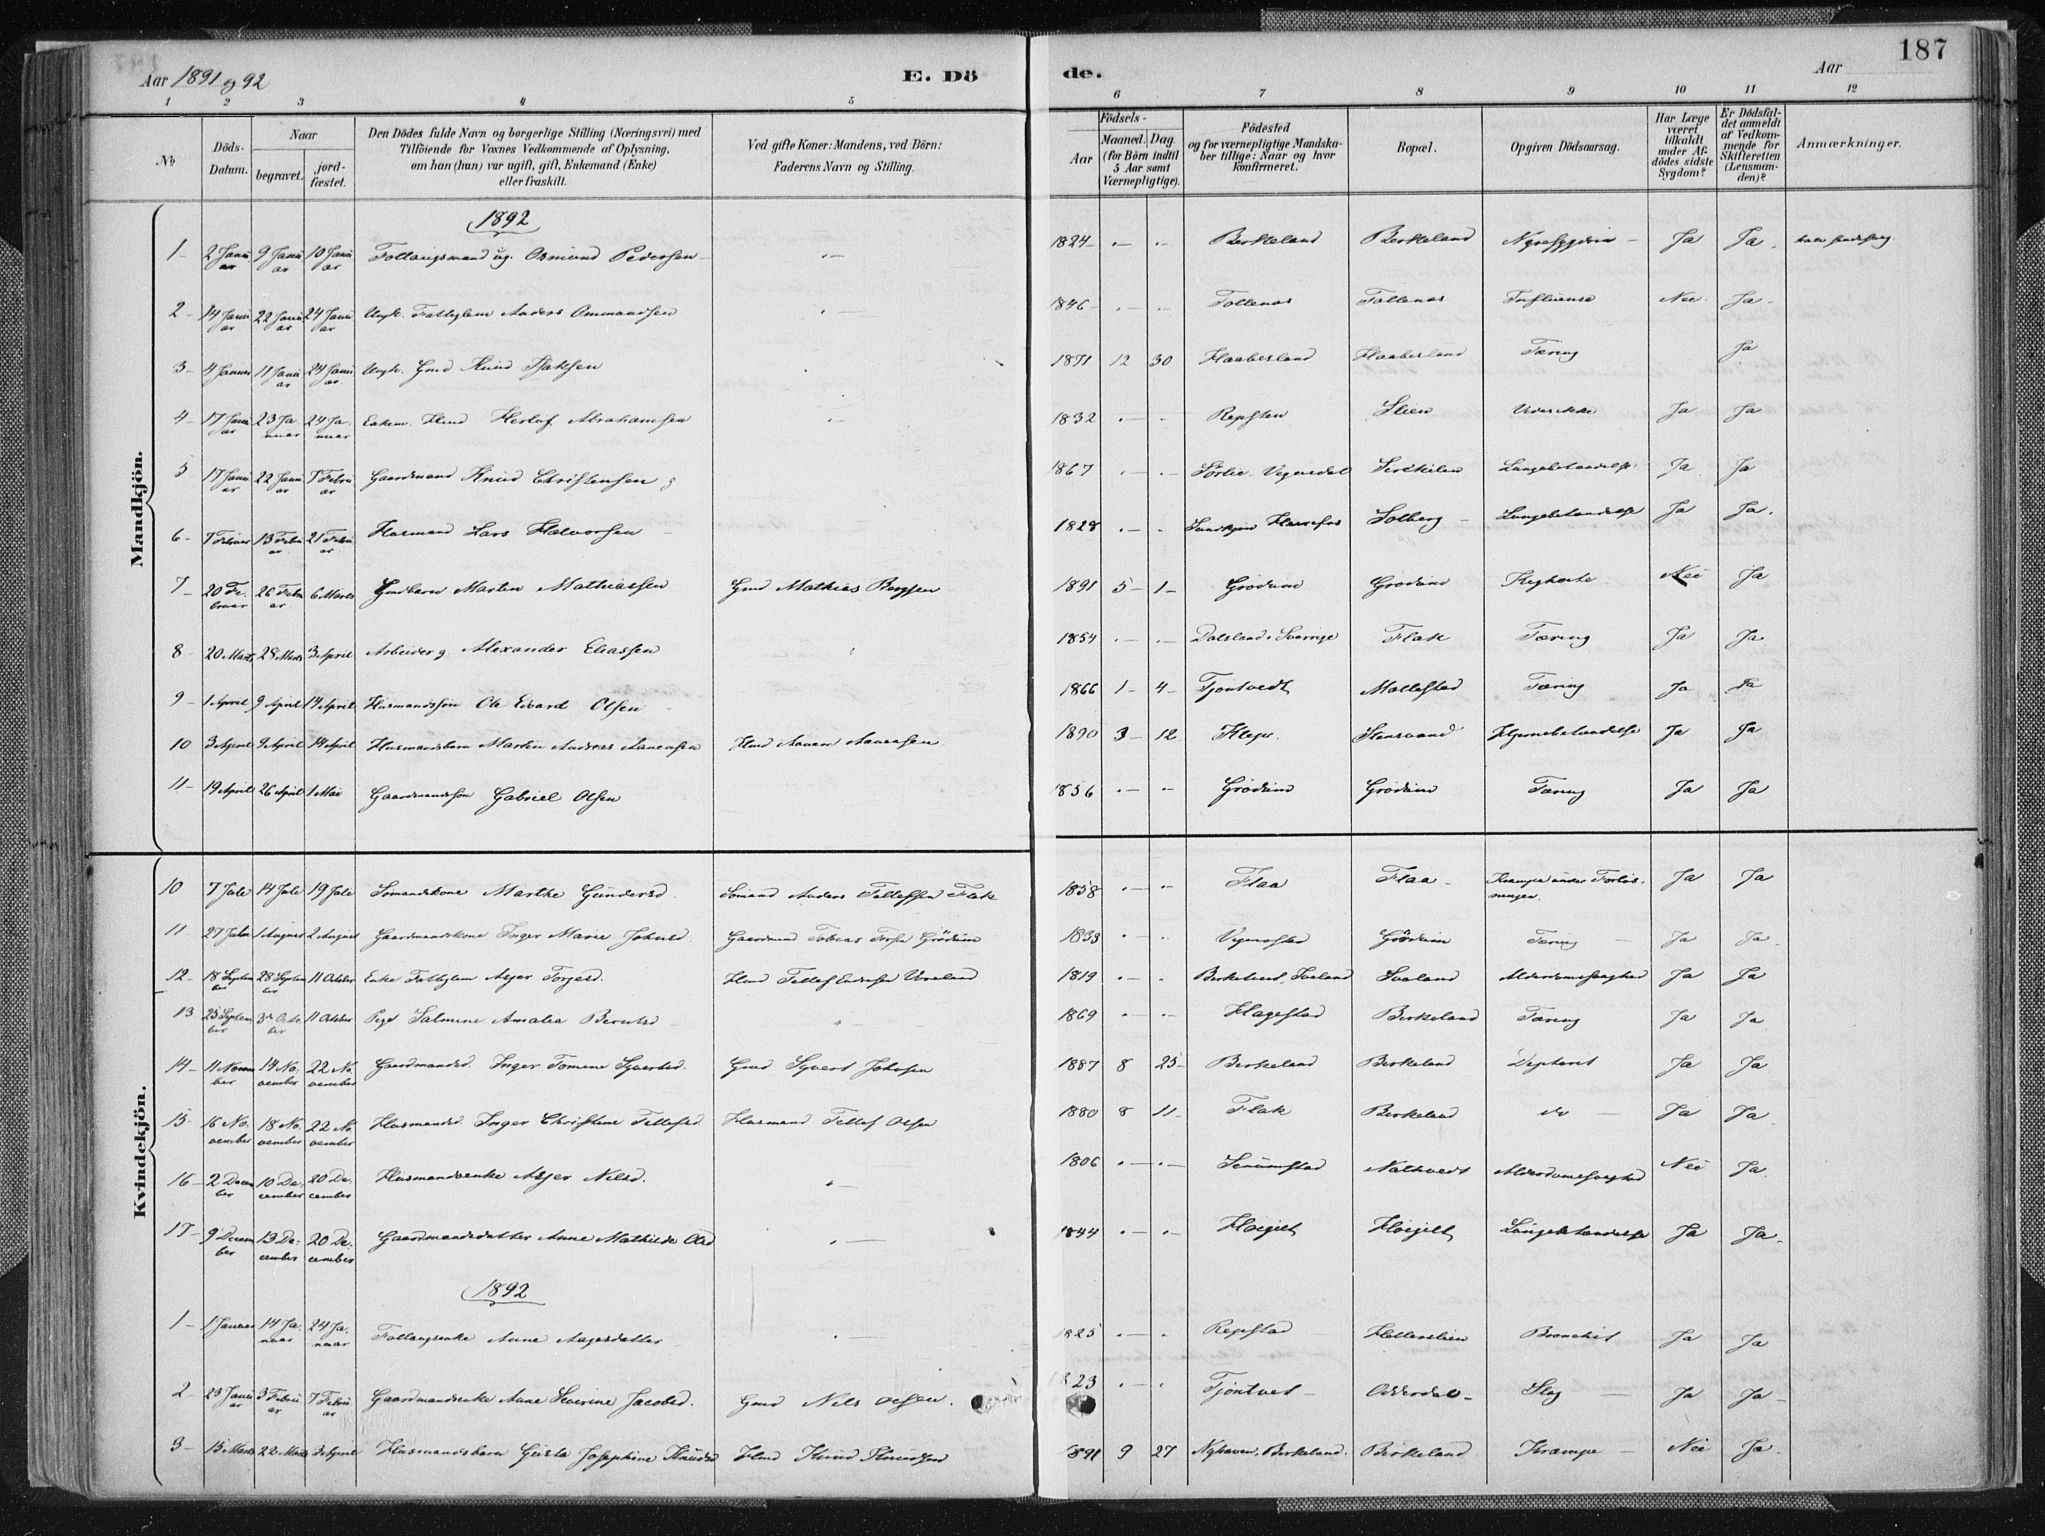 187
Aar 1891 og 92
E. Dö
de.
Aar
1 2 3 4 5 6 7 8 9 10 11 12
No
Döds-Datum.
Naar
begravet.
jord-fæstet.
Den Dödes fulde Navn og borgerlige Stilling (Næringsvei) med
Tilföiende for Voxnes Vedkommende af Oplysning,
om han (hun) var ugift, gift, Enkemand (Enke)
eller fraskilt.
Ved gifte Koner: Mandens, ved Börn:
Faderens Navn og Stilling.
Födsels-
Aar
Maaned. Dag.
(for Börn indtil
5 Aar samt
Værnepligtige).
Födested
og for værnepligtige Mandska-
ber tillige: Naar og hvor
konfirmeret.
Bopæl.
Opgiven Dödsaarsag.
Har Læge
været
tilkaldt
under Af-
dödes sidste
Sygdom?
Er Dödsfal-
det anmeldt
af Vedkom-
mende for
Skifteretten
(Lensman-
den)?
Anmærkninger.
Mandkjön.
1892
1 - 2 Januar 9 Januar 10 Januar Follaugsmand ug. Osmund Pedersen 1824 Berkeland Berkeland Nyresygdom Ja Ja
2 - 14 Januar 22 Januar 24 Januar Ungk. Fattiglem Anders Ommundsen 1846 Tollenes Tollenes Influensa Nei Ja
3 - 4 Januar 11 Januar 24 Januar Ungk. Gmd Knud 1871 12 30 Haaberland Haaberland Tæring Ja
4 - 17 Januar 23 Januar 24 Januar Enkem. Hmd Herlof Abrahamsen 1832 Repsten Lien Vides ikke Ja Ja
5 17 Januar 22 Januar 7 Februar Gaardmand Knud Christensen g 1867 Lungebetændelse Ja Ja
6 - 7 Februar 13 Februar 21 Februar Husmand Lars Halvorsen 1828 Solberg Lungebetændelse Ja Ja
7 - 20 Februar 26 Februar 6 Marts Gmdbarn Martin Mathiassen Gmd Mathias Bergsen 1891 5 1 Grödum Grödum Kighoste Nei Ja
8 - 20 Marts 28 Marts 3 April Arbeider g. Alexander Eliassen 1854 Dalsland i Sverige Flak Tæring Ja Ja
9 - 1 April 9 April 14 April Husmandssön Ole Edvard Olsen 1866 1 4 Tjöntvedt Mollestad Tæring Ja Ja
10 3 April 9 April 14 April Husmandsbarn Martin Andreas Aanensen Hmd Aanen Aanensen 1890 3 12 Klepe Stensvand Hjernebetændelse Ja Ja
11 - 19 April 26 April 1 Mai Gaardmandssön Gabriel Olsen 1856 Grödum Grödum Tæring Ja Ja
Kvindekjön.
10 7 Jule 14 Jule 19 Jule Sömandskone Marthe Gundersd. Sömand Anders Tellefsen Flak 1858 Flaa Flaa Krampe under Forlösningen. Ja Ja
11 - 27 Jule 1 August 2 August Gaardmandskone Inger Marie Johnsd. Gaardmand Tobias Grödum 1833 Vegnestad Grödum Tæring Ja Ja
12 - 18 September 28 September 11 October Enke Fattiglem Asjer Torgersd. Hmd Tellef 1819 Berkeland, Svaland Svaland Alderdomssvaghed Ja Ja
13 25 September 3 October 11 October Pige Salmine Amalia Berntsd 1869 Hagestad Berkeland Tæring Ja Ja
14 - 11 November 14 November 22 November Gaardmandsd. Inger Tomine Syvertsd. Gmd Syvert Johnsen 1887 8 25 Berkeland Berkeland Depterit Ja Ja
15 16 November 18 November 22 November Husmandsd. Inger Christine Tellefsd. Husmand Tellef Olsen 1880 8 11 Flak Berkeland do Ja Ja
16 - 2 December 10 December 20 December Husmandsenke Asjer Nilsd. 1806 Senumstad Natvedt Alderdomssvaghed Nei Ja
17 9 December 13 December 20 December Gaardmandsdatter Anne Mathilde Olsd 1844 Höigilt Höigilt Lungebetændelse Ja Ja
1892
1 - 1 Januar 14 Januar 24 Januar Follaugsenke Anne Aagesdatter 1825 Repstad Hellerslien Bronchit Ja Ja
2 - 23 Januar 3 Februar 7 Februar Gaardmandsenke Anne Severine Jacobsd. Gmd Nils Olsen. 1823 Tjöntvet Odderdal Slag Ja Ja
3 - 15 Marts 22 Marts 3 April Husmandsbarn Gusta Josephine Knudsd Hmd Knud Knudsen 1891 9 27 Nyhaven, Berkeland. Birkeland Krampe Nei Ja